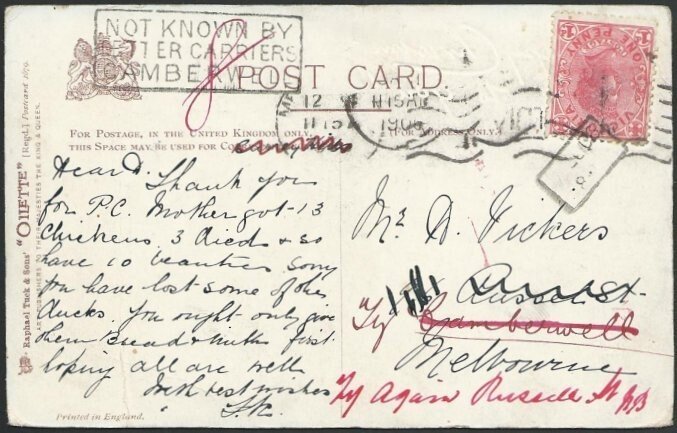 NOT KNOWN BY
LETTER CARRIERS
CAMBERWELL
8
POST CARD.
ONE PENNY
12
11 15 AM
1906
VICT
FOR POSTAGE, IN THE UNITED KINGDOM ONLY,
THIS SPACE MAY BE USED FOR
(FOR ADDRESS ONLY.)
Raphael Tuck & Sons' "OILETTE" [Regd.] Postcard
ART PUBLISHERS TO THEIR MAJESTIES THE KING & QUEEN.
Dear D. Thank you
for P.C. Mother got 13
Chickens 3 died & so
have 10 beauties sorry
you have lost some of the
ducks. You ought only give
them Bread & Milk first
hoping all are well
With best wishes
Mr D. Vickers
Russell St
Try Camberwell
Melbourne
Try Again Russell St
Printed in England.